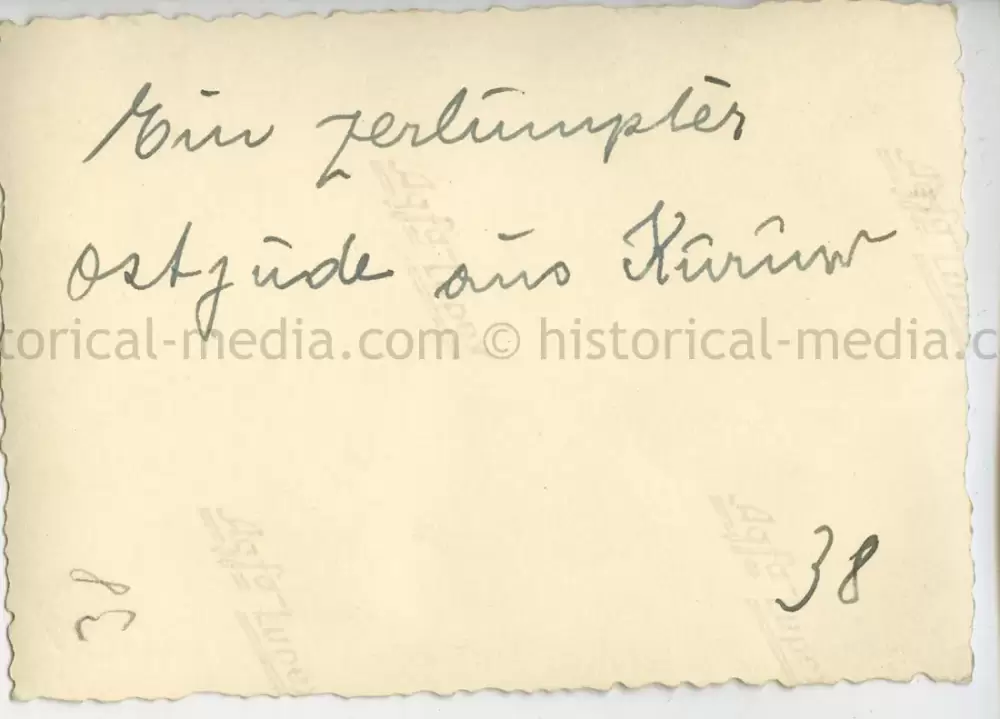 Ein zerlumpter
Ostjude aus Kuruw
torical-media.com © historical-media.c
38
38
Agfa Lupex
Agfa Lupex
Agfa Lupex
Agfa Lupex